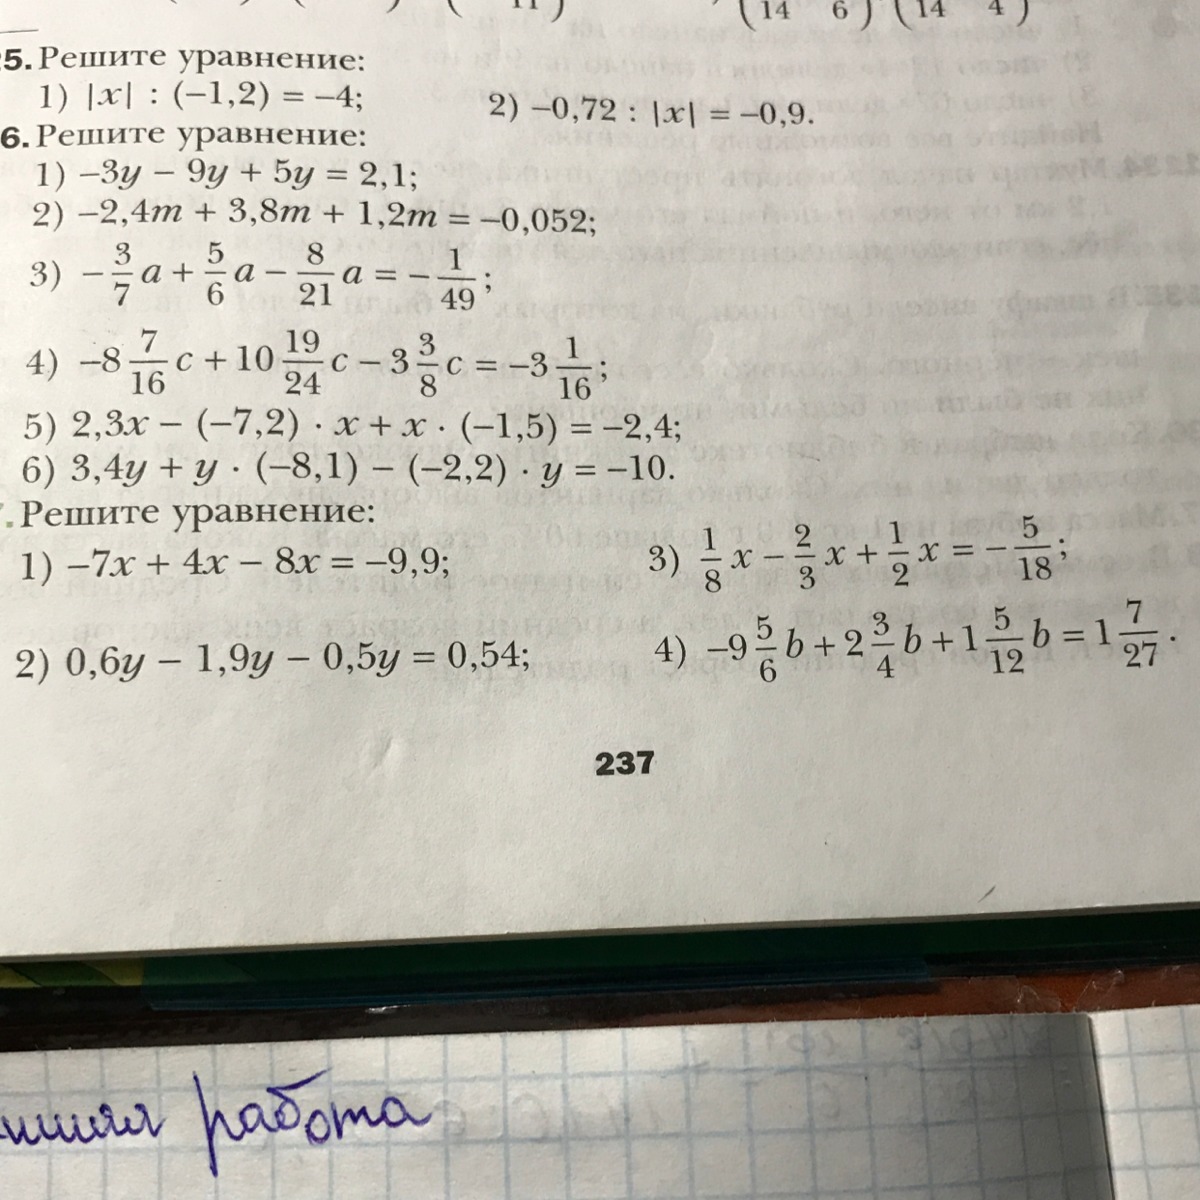 5. Решите уравнение:
1) |x| : (–1,2) = –4;
2) –0,72 : |x| = –0,9.
6. Решите уравнение:
1) –3y – 9y + 5y = 2,1;
2) –2,4m + 3,8m + 1,2m = –0,052;
3) –3/7 a + 5/6 a – 8/21 a = –1/49;
4) –8 7/16 c + 10 19/24 c – 3 3/8 c = –3 1/16;
5) 2,3x – (–7,2) · x + x · (–1,5) = –2,4;
6) 3,4y + y · (–8,1) – (–2,2) · y = –10.
. Решите уравнение:
1) –7x + 4x – 8x = –9,9;
3) 1/8 x – 2/3 x + 1/2 x = –5/18;
2) 0,6y – 1,9y – 0,5y = 0,54;
4) –9 5/6 b + 2 3/4 b + 1 5/12 b = 1 7/27.
237
работа